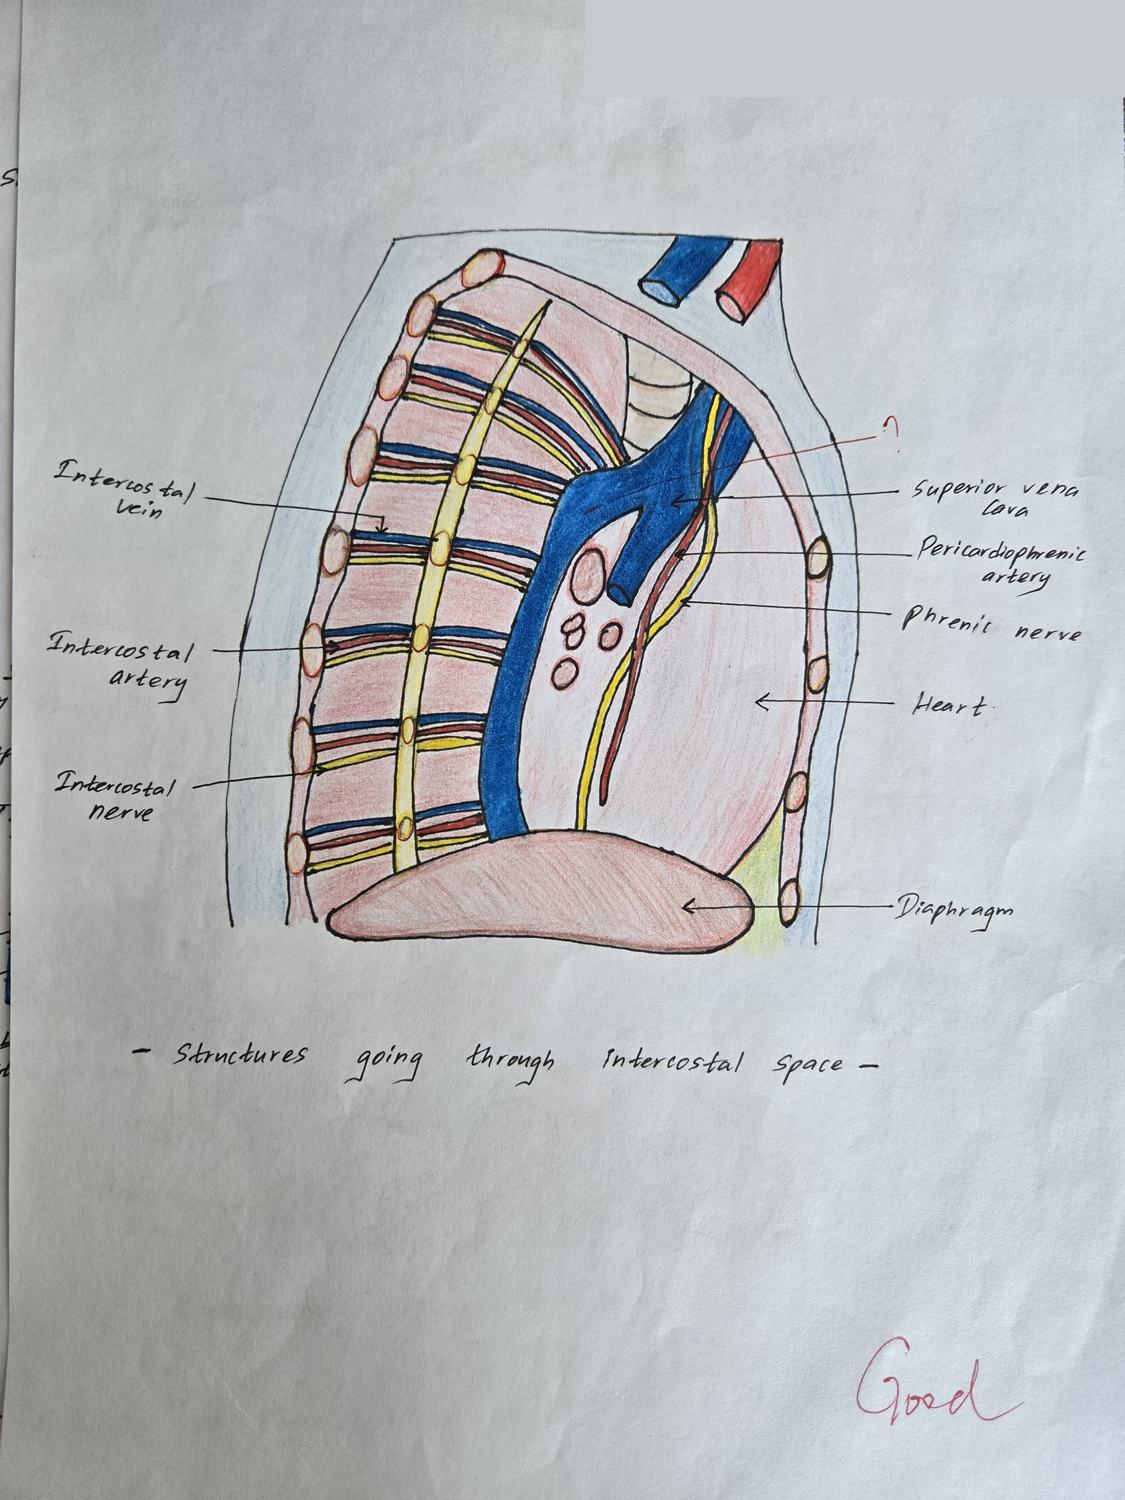 ?
Intercostal
vein
superior vena
Cava
Pericardiophrenic
artery
Intercostal
artery
phrenic nerve
Heart
Intercostal
nerve
Diaphragm
- Structures going through intercostal space -
Good